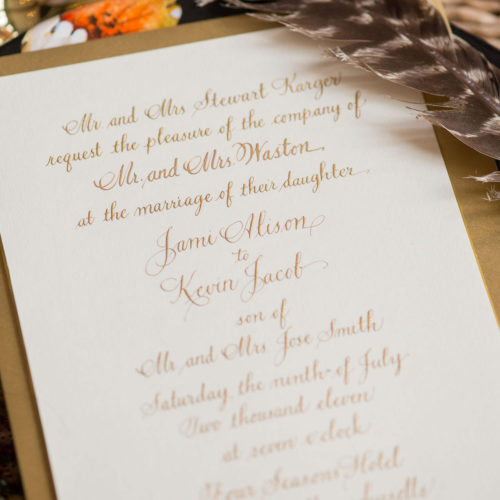 Mr. and Mrs Stewart Karger
request the pleasure of the company of
Mr. and Mrs. Waston
at the marriage of their daughter
Jami Alison
to
Kevin Jacob
son of
Mr. and Mrs. Jose Smith
Saturday, the ninth of July
Two thousand eleven
at seven o'clock
Four Seasons Hotel